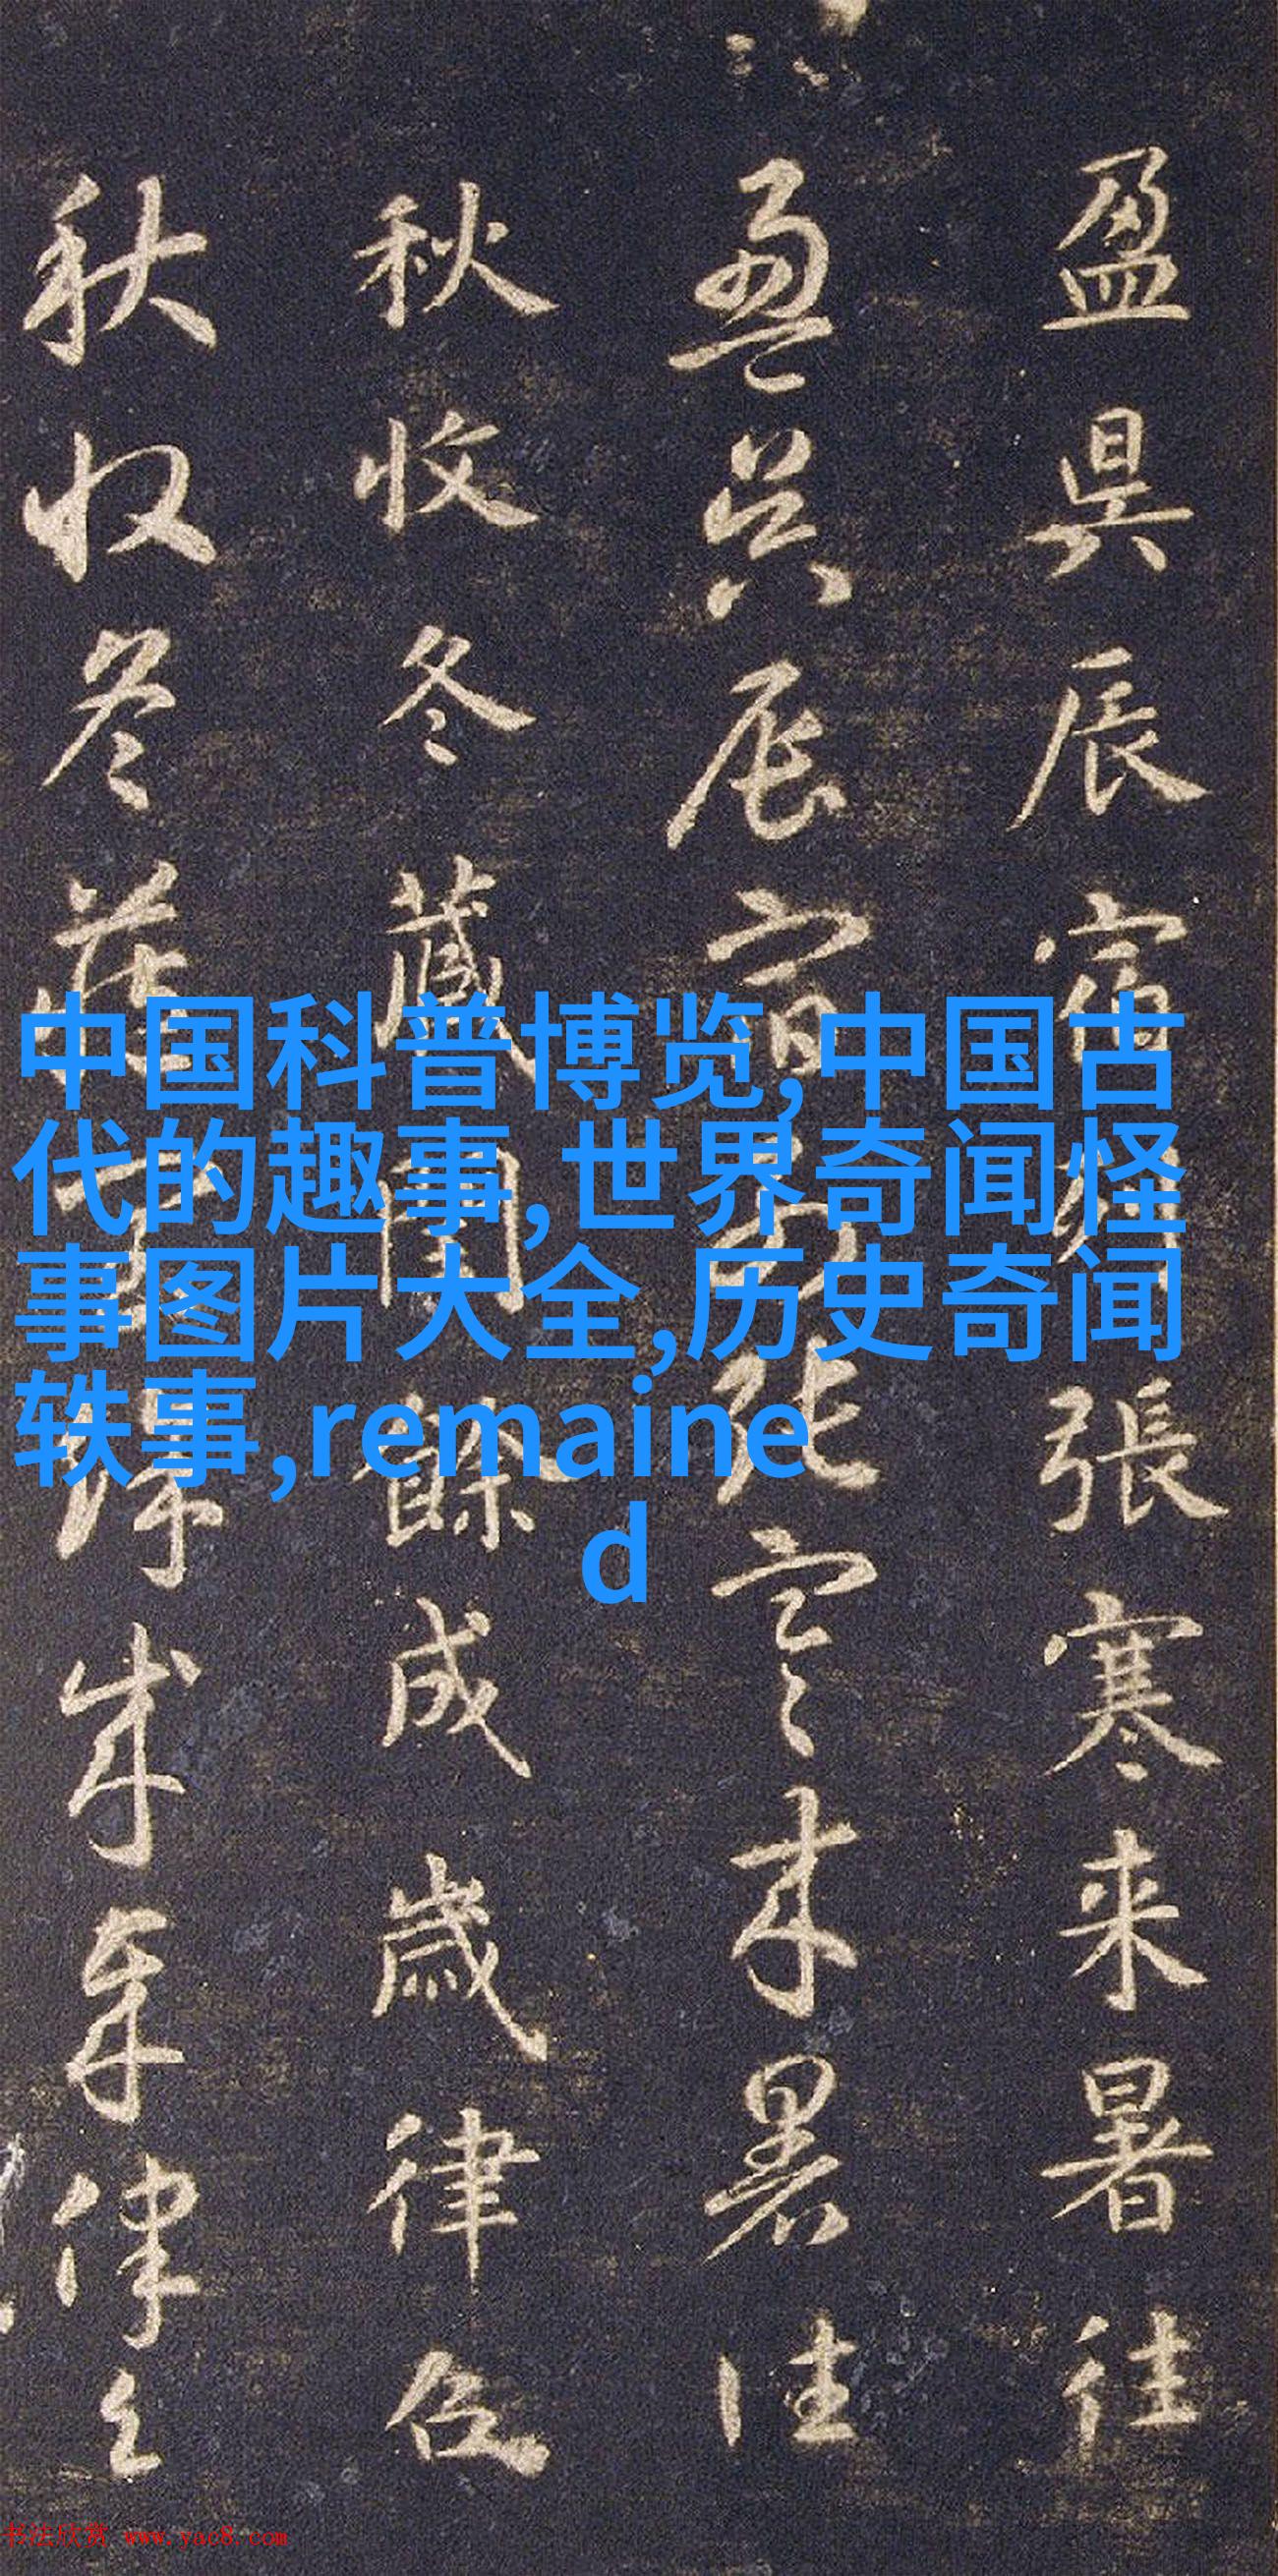 盈昃辰宿列張寒来暑往
盈昃辰宿列张寒来暑往
秋收冬藏閏餘成歲律吕
秋收冬藏
成歲律吕
中国科普博览,中国古
代的趣事,世界奇闻怪
事图片大全,历史奇闻
轶事,remaine
d
书法欣赏 www.yac8.com